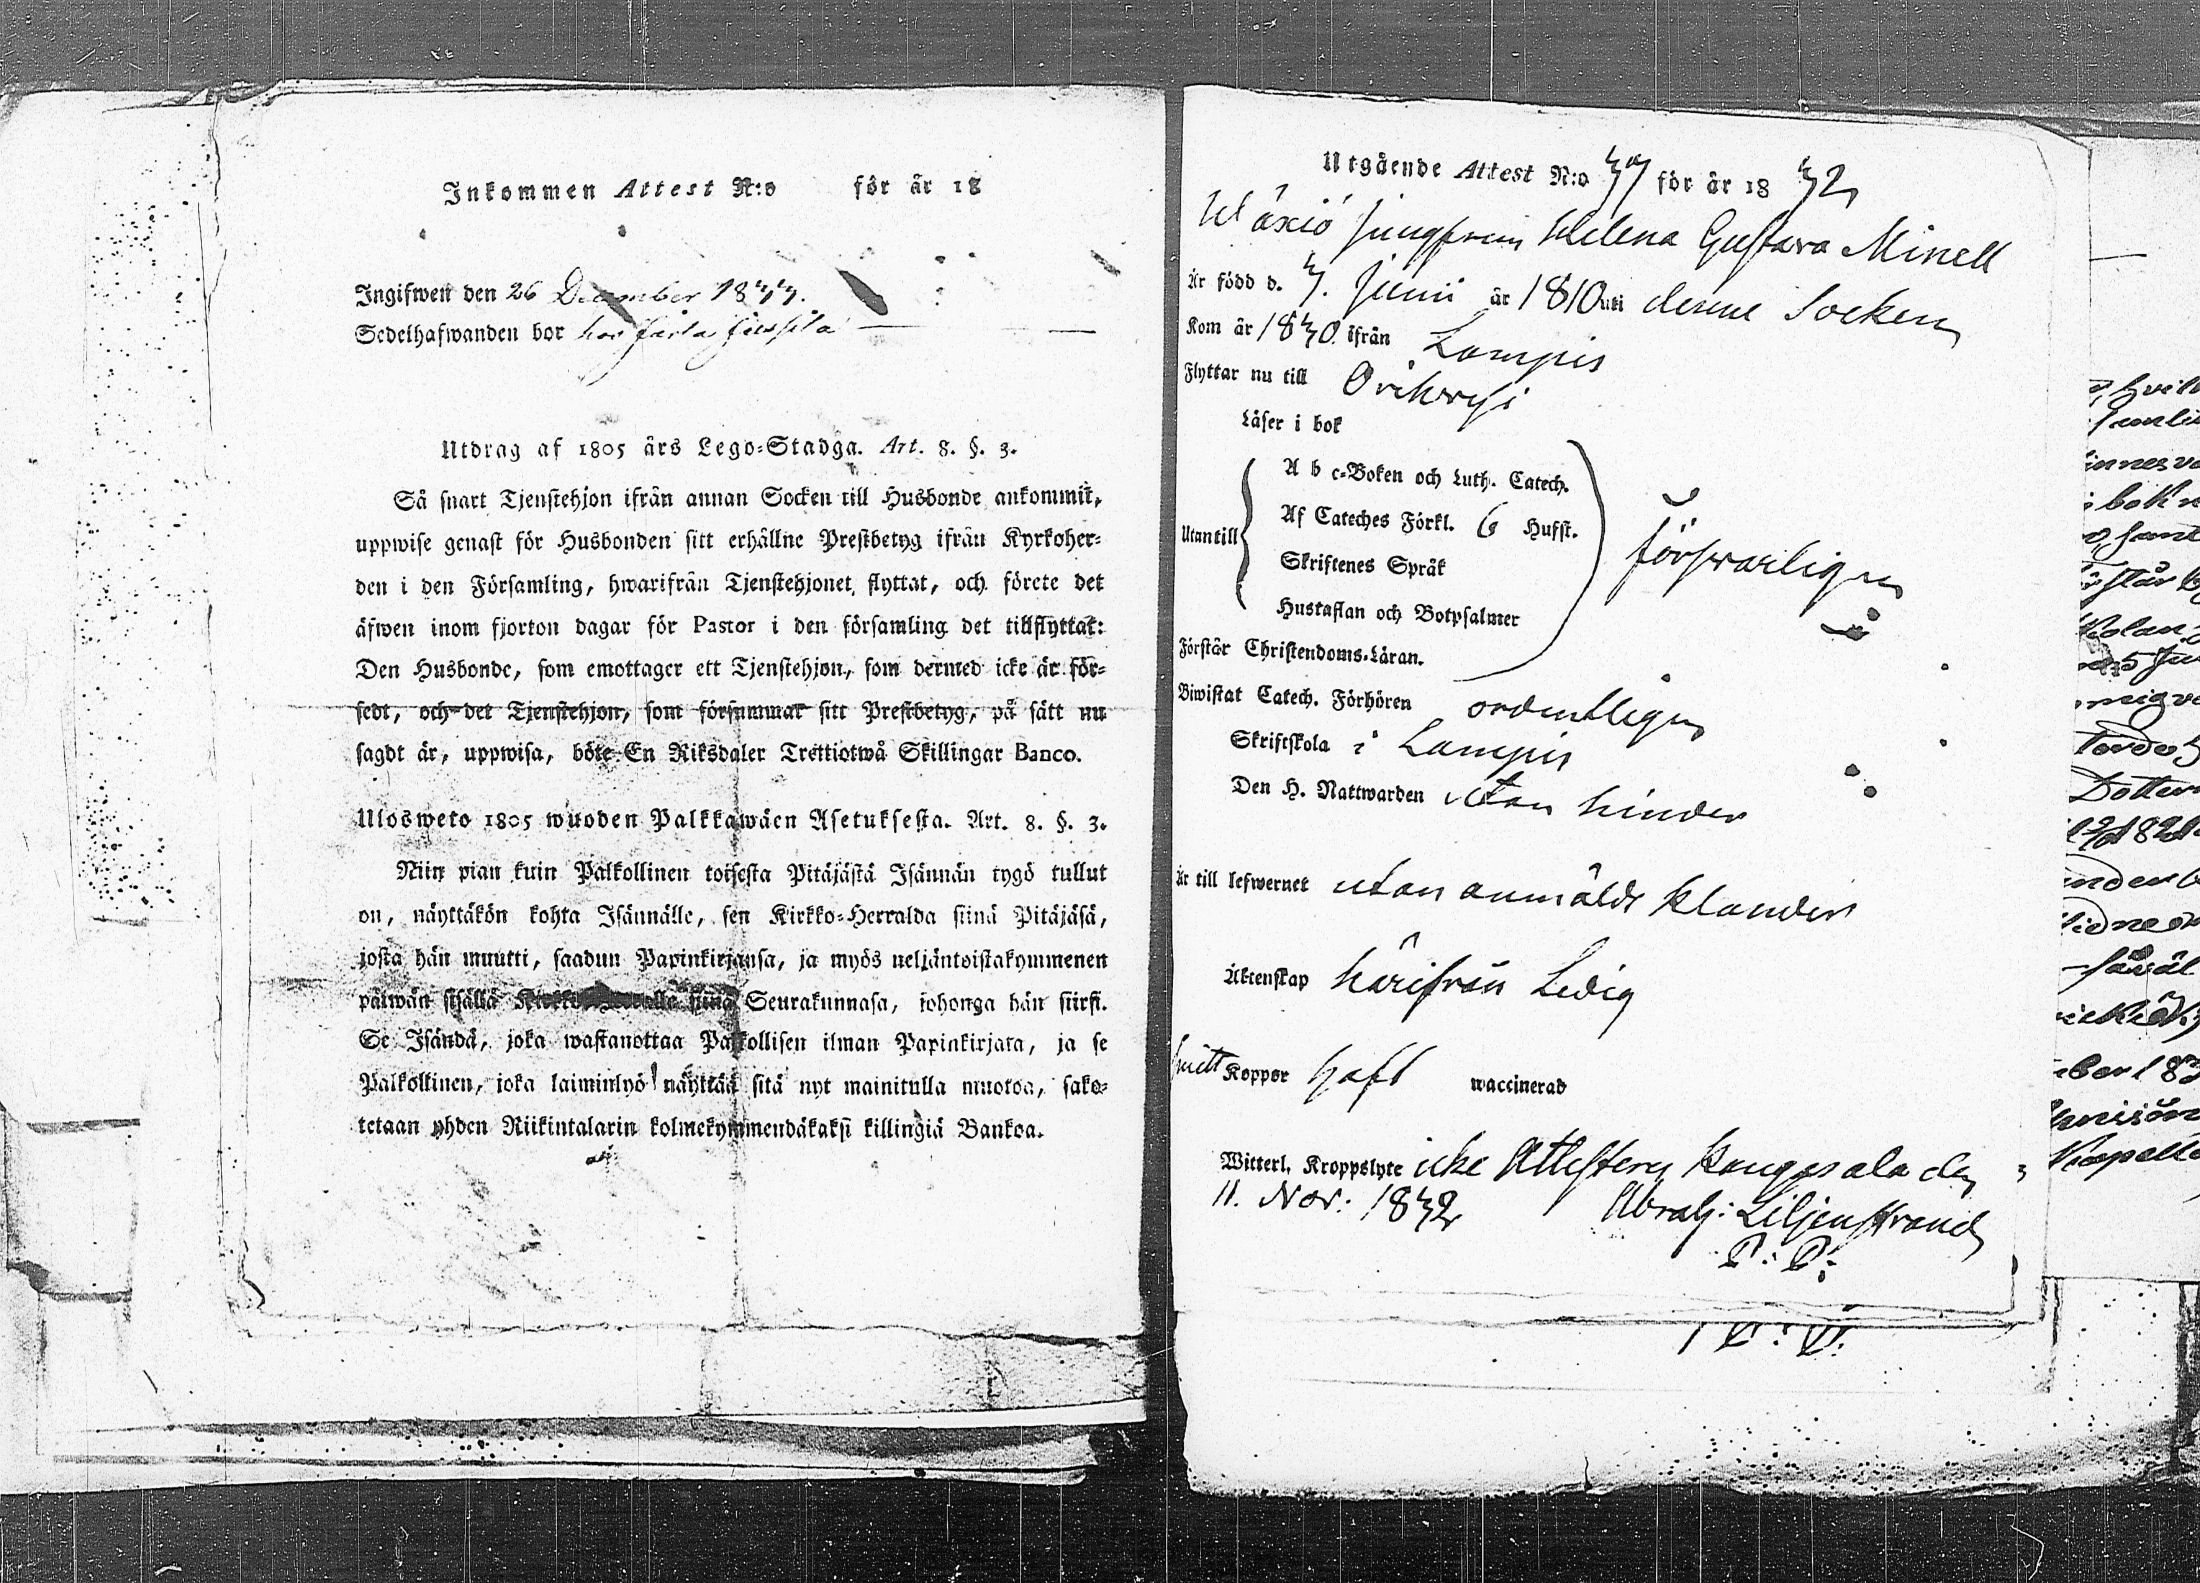 Inkommen Attest N:o för år 18
Ingifwen den 26 December 1844.
Sedelhafwanden bor hos
Utdrag af 1805 års Lego-Stadga. Art. 8. §. 3.
Så snart Tjenstehjon ifrån annan Socken till Husbonde ankommit,
uppwise genast för Husbonden sitt erhållne Prestbetyg ifrån Kyrkoher-
den i den Församling, hwarifrån Tjenstehjonet flyttat, och förete det
äfwen inom fjorton dagar för Pastor i den församling det tillflyttat:
Den Husbonde, som emottager ett Tjenstehjon, som dermed icke är för-
sedt, och det Tjenstehjon, som försummar sitt Prestbetyg, på sätt nu
sagdt är, uppwisa, böte En Riksdaler Trettiotwå Skillingar Banco.
Ulosweto 1805 wuoden Palkkawäen Asetuksesta. Art. 8. §. 3.
Niin pian kuin Palkollinen toisesta Pitäjästä Isännän tygö tullut
on, näyttäkön kohta Isännälle, sen Kirkko-Herralda siinä Pitäjäsä,
josta hän muutti, saadun Papinkirjansa, ja myös neljäntoistakymmenen
päiwän sisällä siinä Seurakunnasa, johonga hän siirsi.
Se Isändä, joka wastanottaa Palkollisen ilman Papinkirjata, ja se
Palkollinen, joka laiminlyö näyttää sitä nyt mainitulla muotoa, sako-
tetaan yhden Riikintalarin kolmekymmendäkaksi killingiä Bankoa.
Utgående Attest N:o 47 för år 1842
Wäxiö Jungfrun Helena Gustava Minell
Är född d. 4. Junii år 1810 uti denne Socken
Kom år 1840 ifrån Lampis
Flyttar nu till Orihvesi
Läser i bok
Utantill
A b c-Boken och Luth. Catech.
Af Cateches Förkl. 6 Hufst.
Skriftenes Språk
Hustaflan och Botpsalmer
försvarligen
Förstår Christendoms-Läran.
Biwistat Catech. Förhören ordentligen
Skriftskola i Lampis
Den H. Nattwarden utan hinder
Är till lefwernet utan anmäldt klander
Äktenskap härifrån Ledig
Koppor haft waccinerad
Witterl. Kroppslyte icke Attesterar Kangasala den
11. Nov: 1842 Abrah: Liljenstrand
P: P:
P: P: